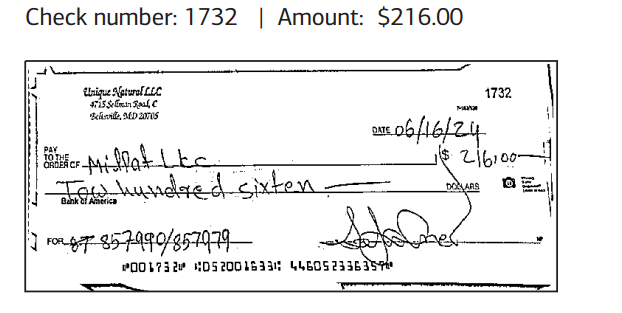 Check number: 1732 | Amount: $216.00
Unique Natural LLC
4715 Sellman Road, C
Beltsville, MD 20705
1732
DATE 06/16/24
PAY TO THE ORDER OF Millat LLC $ 216.00
Tow hundred sixten DOLLARS
Bank of America
FOR 857990/857979
⑈001732⑈ ⑆052001633⑆